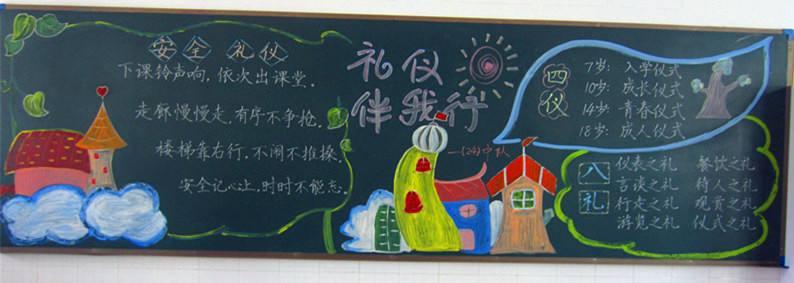 安全礼仪
下课铃声响,依次出课堂.
走廊慢慢走,有序不争抢.
楼梯靠右行,不闹不推搡.
安全记心上,时时不能忘.
礼仪
伴我行
一(24)中队
四仪
7岁: 入学仪式
10岁: 成长仪式
14岁: 青春仪式
18岁: 成人仪式
八礼
仪表之礼 餐饮之礼
言谈之礼 待人之礼
行走之礼 观赏之礼
游览之礼 仪式之礼